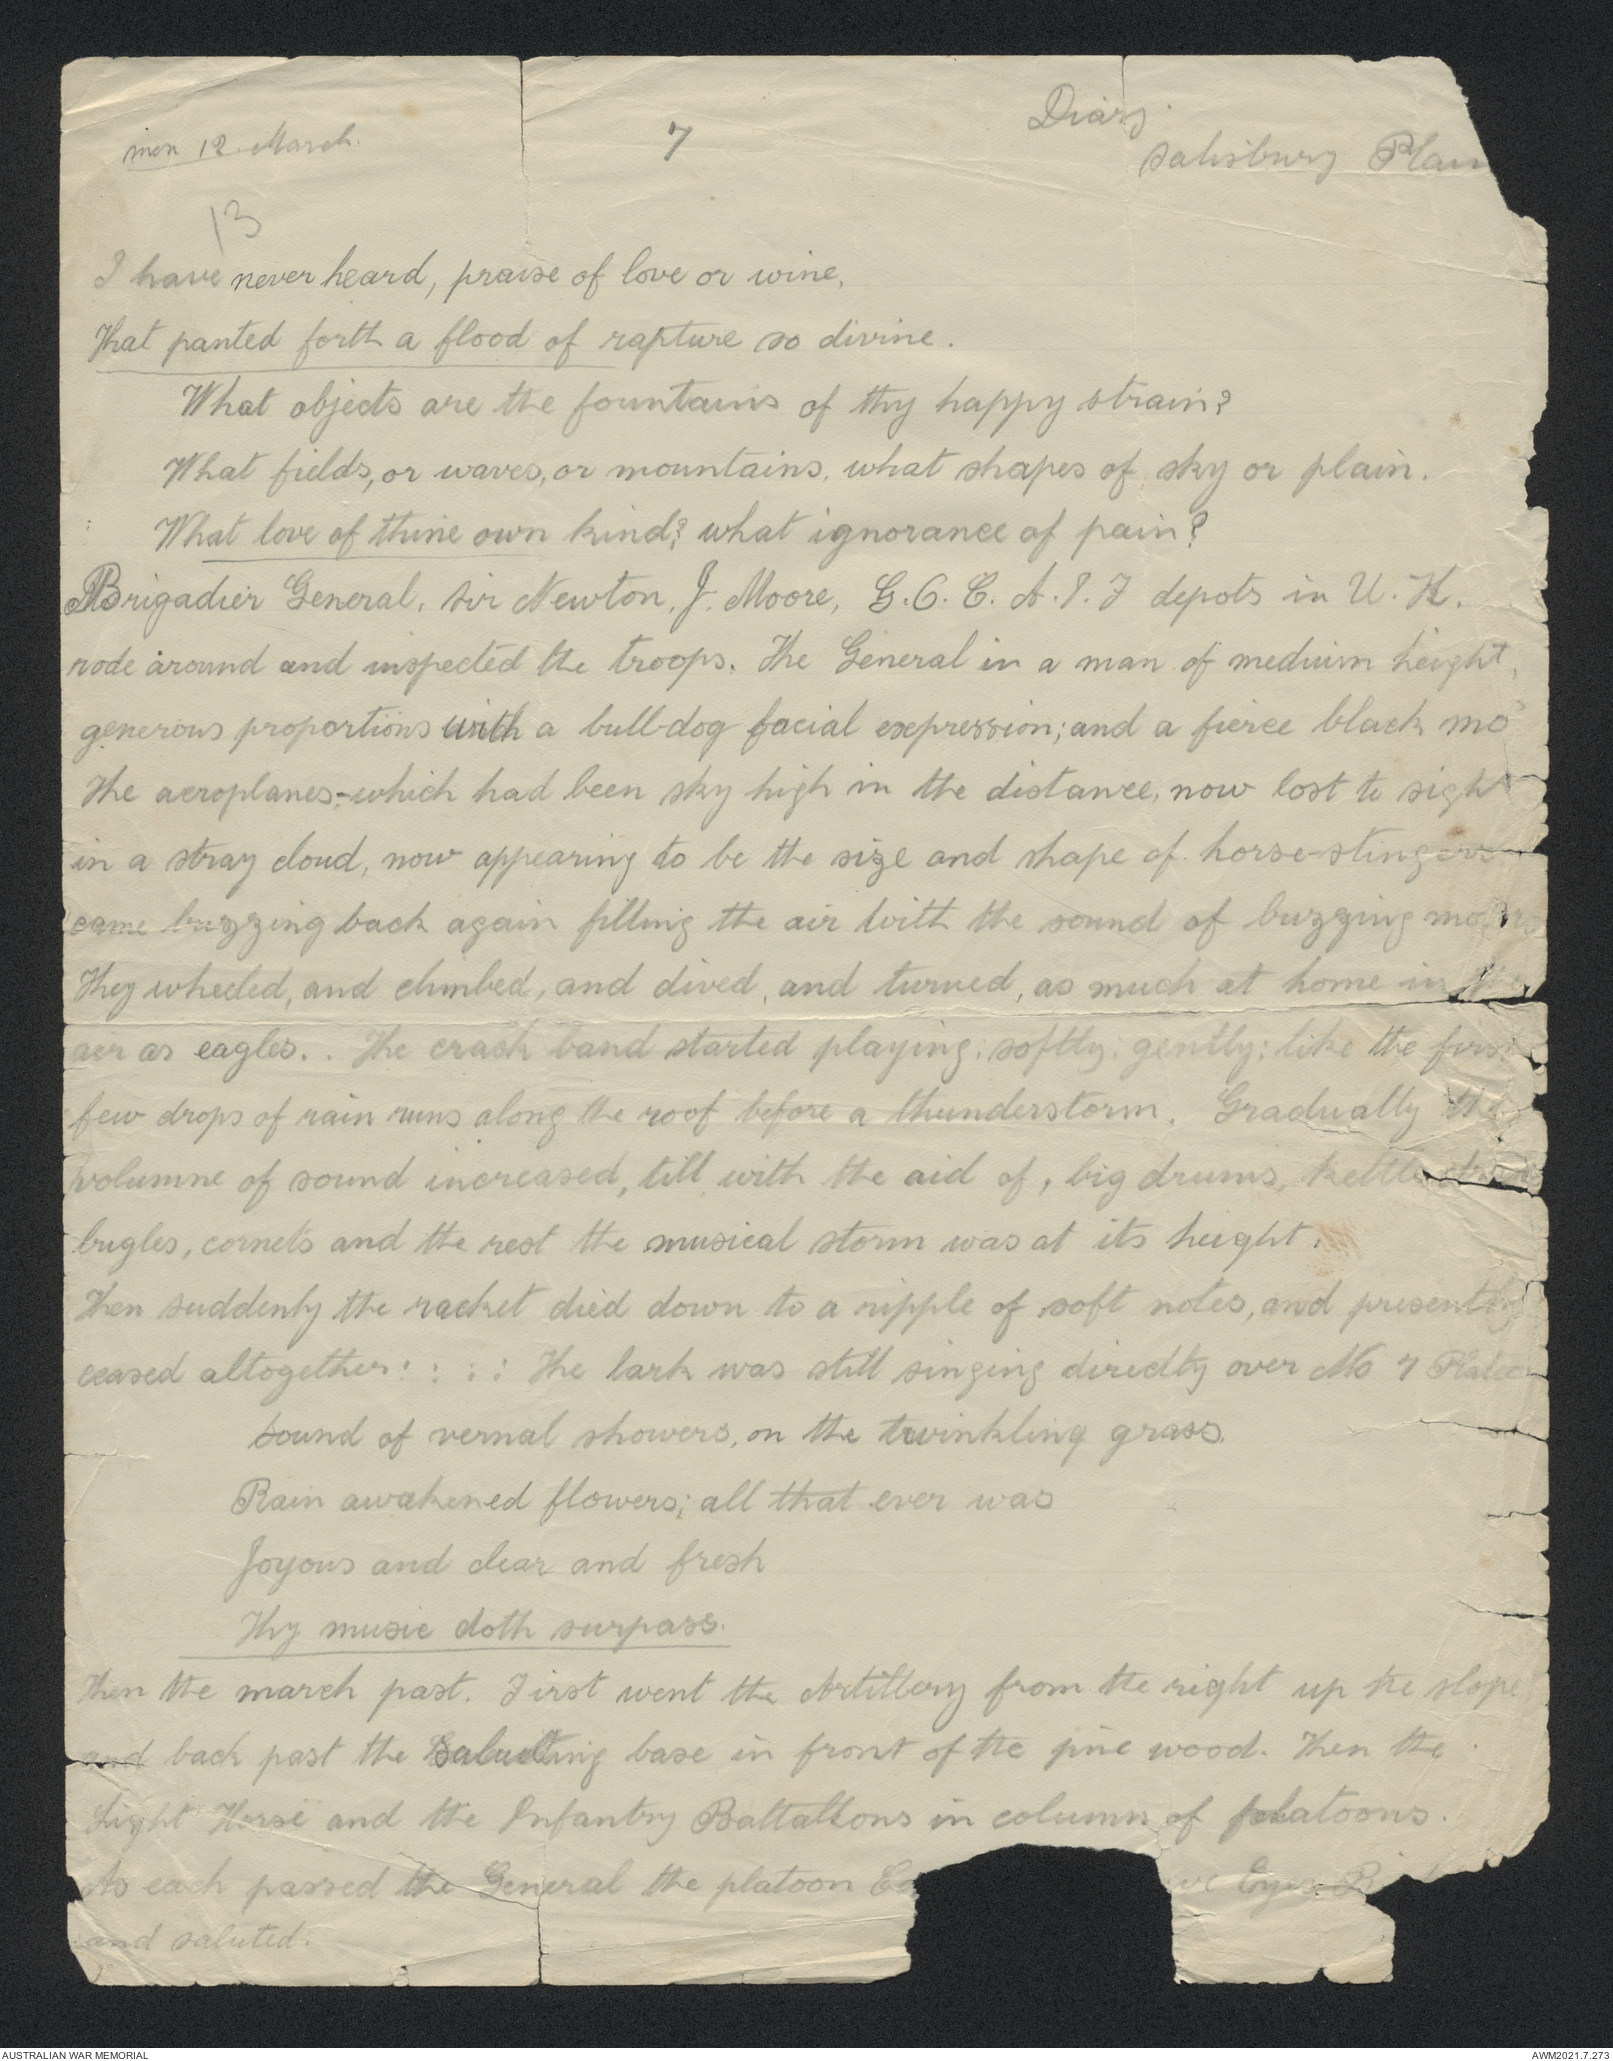 Diary.
mon 12 March. 7 Salisbury Plain
13
I have never heard, praise of love or wine,
That panted forth a flood of rapture so divine.
What objects are the fountains of thy happy strain?
What fields, or waves, or mountains, what shapes of sky or plain.
What love of thine own kind? what ignorance of pain?
Brigadier General, Sir Newton, J. Moore, G.O.C. A.I.F depots in U.K.
rode around and inspected the troops. The General in a man of medium height,
generous proportions with a bull-dog facial expression; and a fierce black mo
The aeroplanes;-which had been sky high in the distance, now lost to sight
in a stray cloud, now appearing to be the size and shape of horse-stingers
came buzzing back again filling the air with the sound of buzzing
They wheeled, and climbed, and dived, and turned, as much at home in the
air as eagles. . The crack band started playing; softly; gently; like the first
few drops of rain runs along the roof before a thunderstorm. Gradually the
volumne of sound increased, till with the aid of, big drums, kettle
bugles, cornets and the rest the musical storm was at its height.
Then suddenly the racket died down to a ripple of soft notes, and presently
ceased altogether: : : : The lark was still singing directly over No 7 Platoon
Sound of vernal showers, on the twinkling grass.
Rain awakened flowers; all that ever was
Joyous and clear and fresh
Thy music doth surpass.
Then the march past. First went the Artillery from the right up the slope
and back past the Saluting base in front of the pine wood. Then the
Light Horse and the Infantry Battalions in column of platoons.
As each passed the General the platoon Eyes
and saluted.
AUSTRALIAN WAR MEMORIAL
AWM2021.7.273